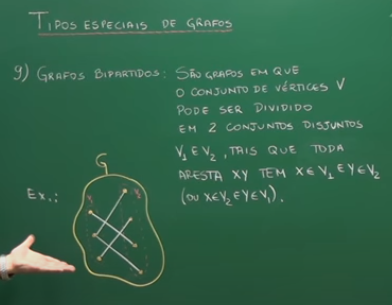 TIPOS ESPECIAIS DE GRAFOS
9) GRAFOS BIPARTIDOS: SÃO GRAFOS EM QUE
O CONJUNTO DE VÉRTICES V
PODE SER DIVIDIDO
EM 2 CONJUNTOS DISJUNTOS
V₁ E V₂, TAIS QUE TODA
ARESTA XY TEM X ∈ V₁ E Y ∈ V₂
(OU X ∈ V₂ E Y ∈ V₁).
G
Ex.: